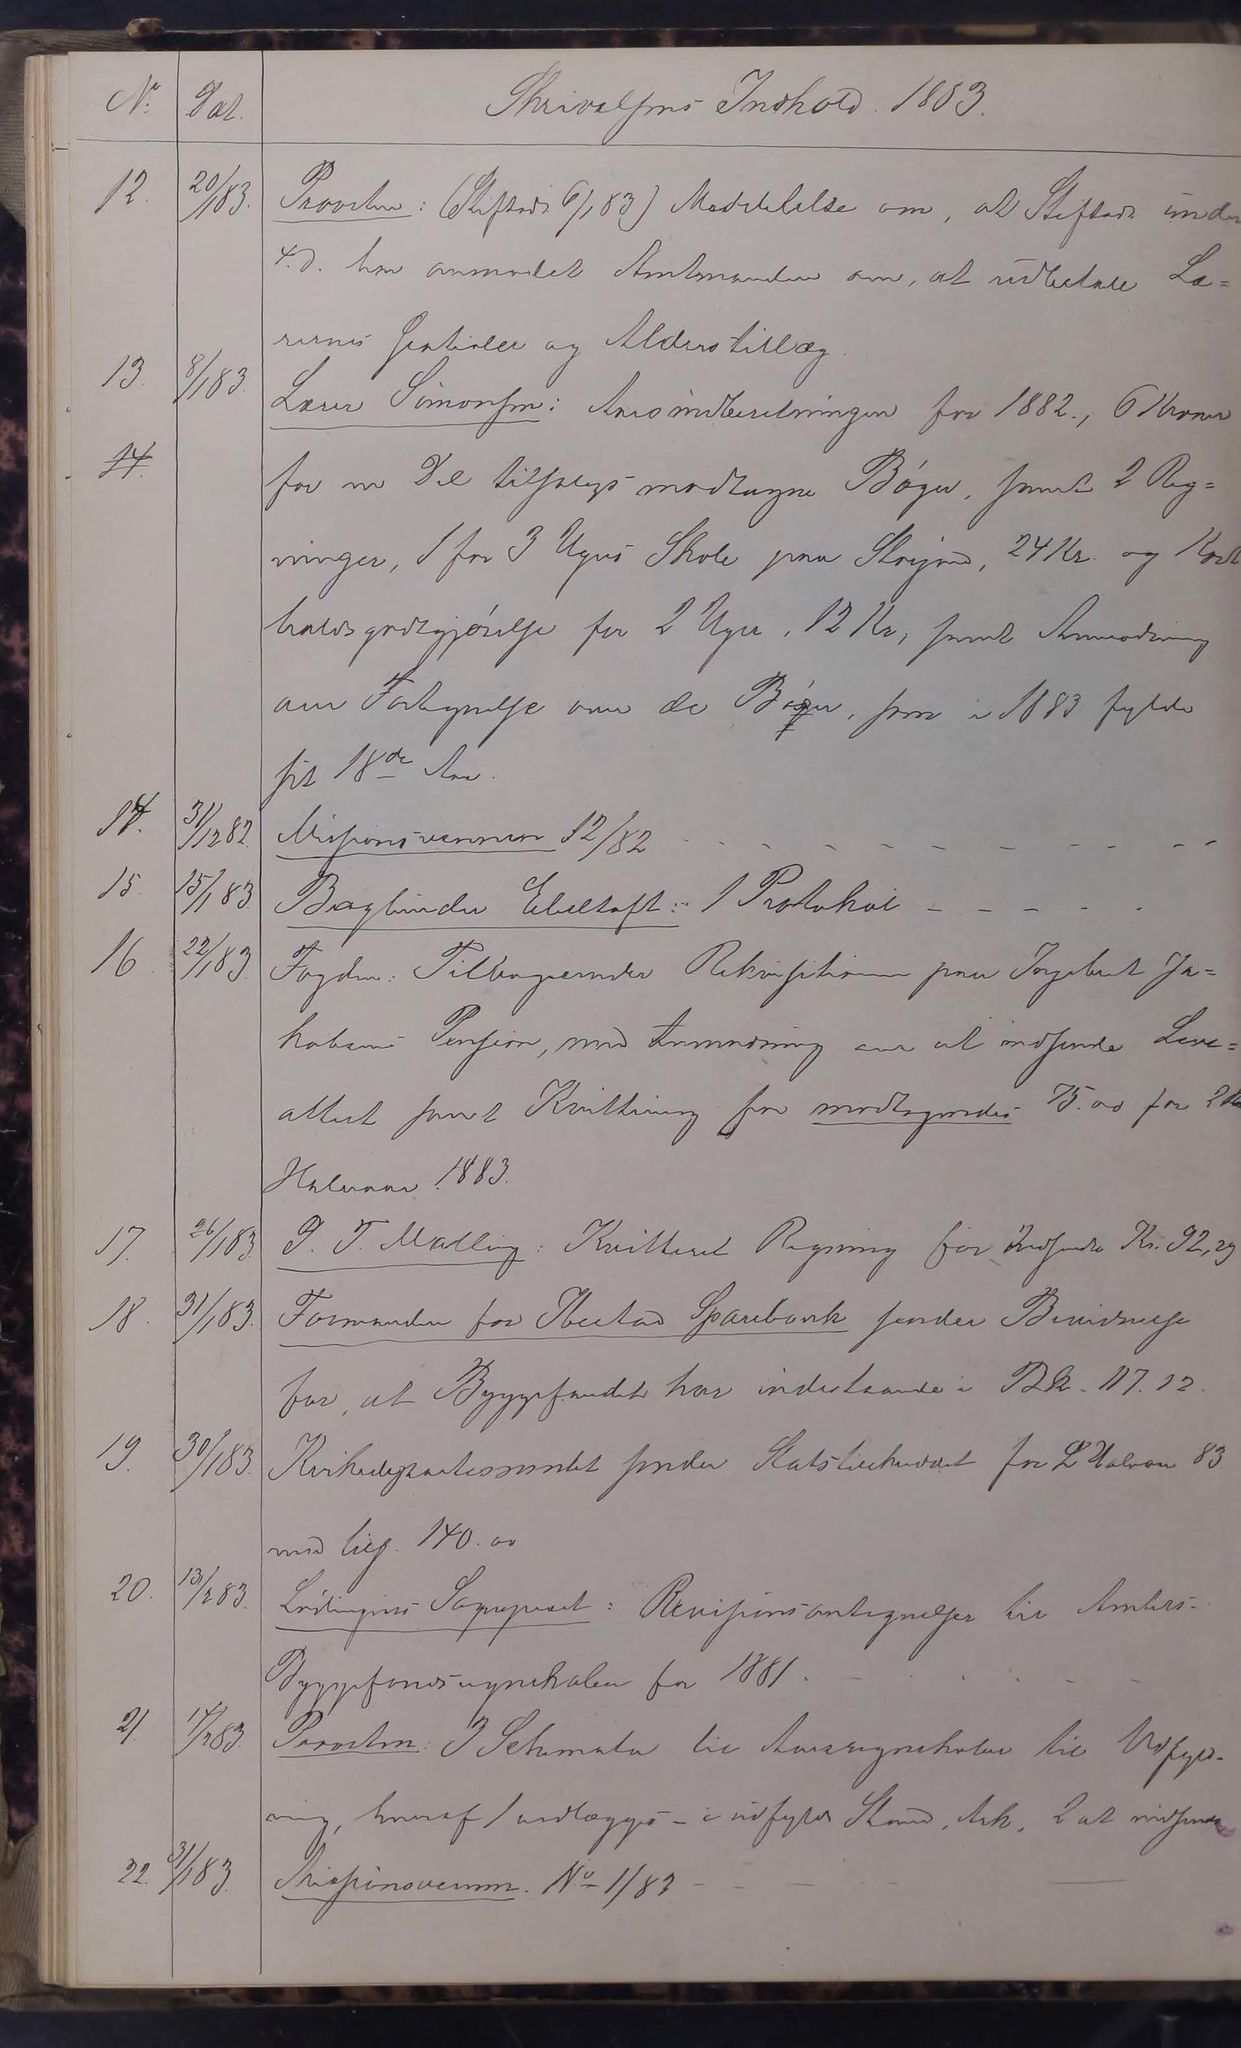 No. Dat. Skrivelsens Indhold. 1883.
12. 20/1 83. Provsten: (Stiftsdir 6/1 83) Meddelelse om, at Stiftsdir under
s.D. har anmodet Amtmanden om, at udbetale Læ=
rernes og Alderstillæg.
13. 8/1 83. Lærer Simonsen: Aarsindberetningen for 1882., 6 Kroner
14. for en Del tilsalgs modtagne Bøger, samt 2 Reg=
ninger, 1 for 3 Ugers Skole paa 24 Kr. og Kost
holdsgodtgjørelse for 2 Uger, 12 Kr, samt Anmodning
om Fortegnelse over de som i 1883 fylde
sit 18de Aar.
14. 31/12 82. Missionsvennen 12/82
15. 15/1 83. Bogbinder Ebeltoft: 1 Protokol
16. 22/1 83. Fogden: Tilbagesender Rekvisitionen paa Ingebret Ja=
kobsens Pension, med Anmodning om at indsende Leve=
attest samt Kvittering for modtagendes 75.00 for
Halvaar 1883.
17. 26/1 83. P. T. Malling: Kvitteret Regning for indsendte Kr. 92,29
18. 31/1 83. Formanden for Ibestad Sparebank sender Bevidnelse
for, at Byggefondet har indestaaende i 117.12.
19. 30/1 83. Kirkedepartementet sender Statstilskuddet for 2 Halvaar 83
med tils. 140.00
20. 13/2 83. Lødingens Sognepræst: Revisionsantegnelser til Amters-
Byggefondsregnskaber for 1881.
21. 17/2 83. Provsten: 3 Schemata til Aarsregnskaber til Udfyld-
ning, hvoraf 1 nedlægges i udfyldt Stand i Ark., 2 at indsende
22. 31/1 83. Missionsvennen. No 1/83